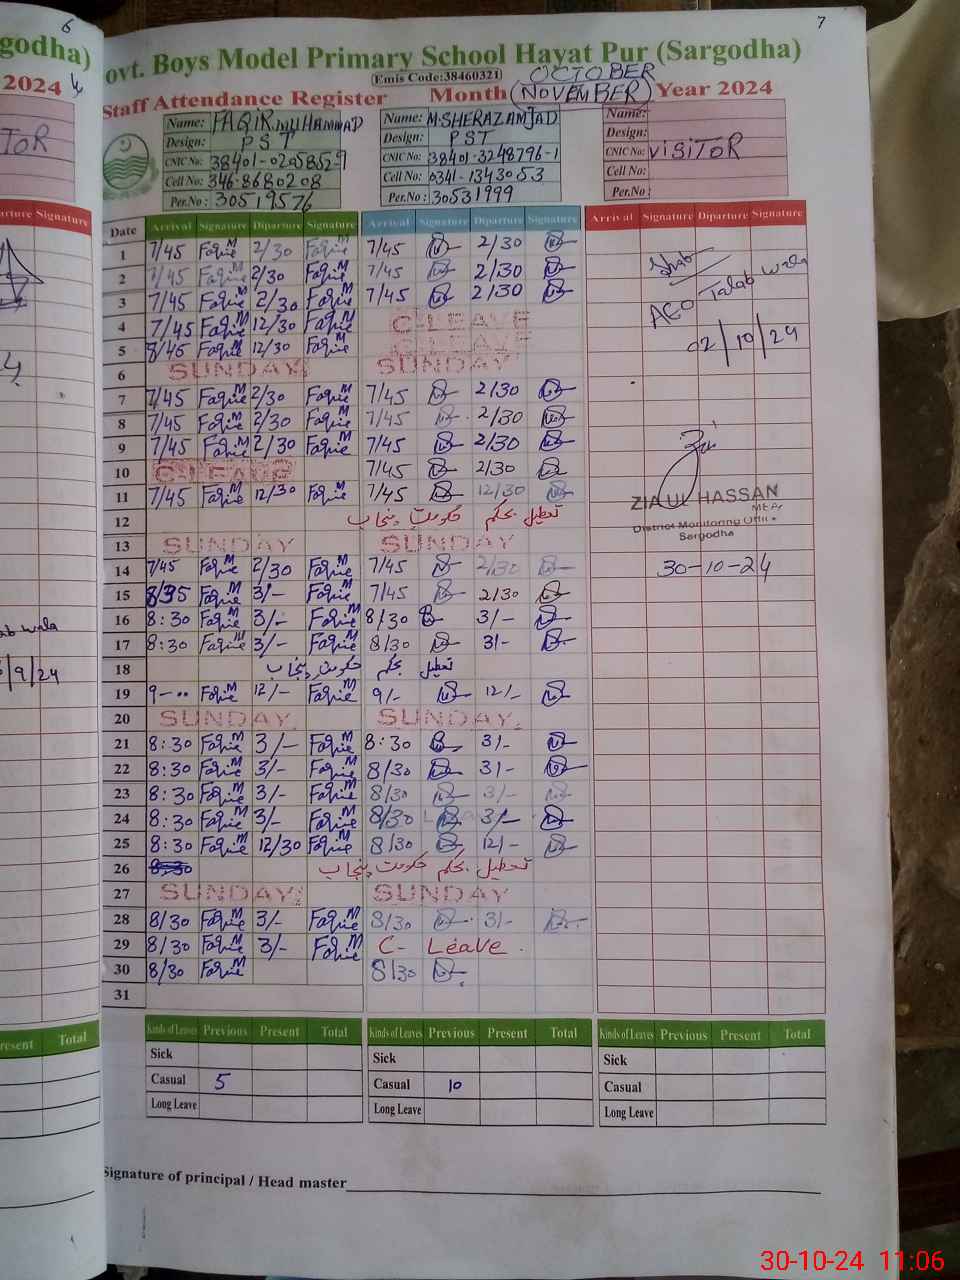 6
7
godha)
ovt. Boys Model Primary School Hayat Pur (Sargodha)
Emis Code:38460321
OCTOBER
2024
Staff Attendance Register Month NOVEMBER Year 2024
Name: FAQIR MUHAMMAD Name: M.SHERAZAMJAD Name:
Design: PST Design: PST Design:
CNIC No: 38401-0205852-9 CNIC No: 38401-3248796-1 CNIC No: VISITOR
Cell No: 346-8680208 Cell No: 0341-1343053 Cell No:
Per.No: 30519576 Per.No: 30531999 Per.No:
arture Signature
Date Arrival Signature Diparture Signature Arrival Signature Diparture Signature Arrival Signature Diparture Signature
1 7/45 Faqir M 2/30 Faqir M 7/45 2/30
2 7/45 Faqir M 2/30 Faqir M 7/45 2/30
3 7/45 Faqir M 2/30 Faqir M 7/45 2/30
4 7/45 Faqir M 12/30 Faqir M C-LEAVE
5 8/45 Faqir M 12/30 Faqir M C-LEAVE
6 SUNDAY SUNDAY
7 7/45 Faqir M 2/30 Faqir M 7/45 2/30
8 7/45 Faqir M 2/30 Faqir M 7/45 2/30
9 7/45 Faqir M 2/30 Faqir M 7/45 2/30
10 C-LEAVE 7/45 2/30
11 7/45 Faqir M 12/30 Faqir M 7/45 12/30
12 تعطیل بحکم حکومت پنجاب
13 SUNDAY SUNDAY
14 7/45 Faqir M 2/30 Faqir M 7/45 2/30
15 8/35 Faqir M 3/- Faqir M 7/45 2/30
16 8:30 Faqir M 3/- Faqir M 8/30 3/-
17 8:30 Faqir M 3/- Faqir M 8/30 3/-
18 تعطیل بحکم حکومت پنجاب
19 9-.. Faqir M 12/- Faqir M 9/- 12/-
20 SUNDAY SUNDAY
21 8:30 Faqir M 3/- Faqir M 8:30 3/-
22 8:30 Faqir M 3/- Faqir M 8/30 3/-
23 8:30 Faqir M 3/- Faqir M 8/30 3/-
24 8:30 Faqir M 3/- Faqir M 8/30 3/-
25 8:30 Faqir M 12/30 Faqir M 8/30 12/-
26 8:30 تعطیل بحکم حکومت پنجاب
27 SUNDAY SUNDAY
28 8/30 Faqir M 3/- Faqir M 8/30 3/-
29 8/30 Faqir M 3/- Faqir M C- Leave
30 8/30 Faqir M 8/30
31
AEO Talab wala
02/10/24
ZIA UL HASSAN
MEA
District Monitoring Office
Sargodha
30-10-24
wala
9/24
resent Total
Kinds of Leaves Previous Present Total Kinds of Leaves Previous Present Total Kinds of Leaves Previous Present Total
Sick Sick Sick
Casual 5 Casual 10 Casual
Long Leave Long Leave Long Leave
Signature of principal / Head master
30-10-24 11:06